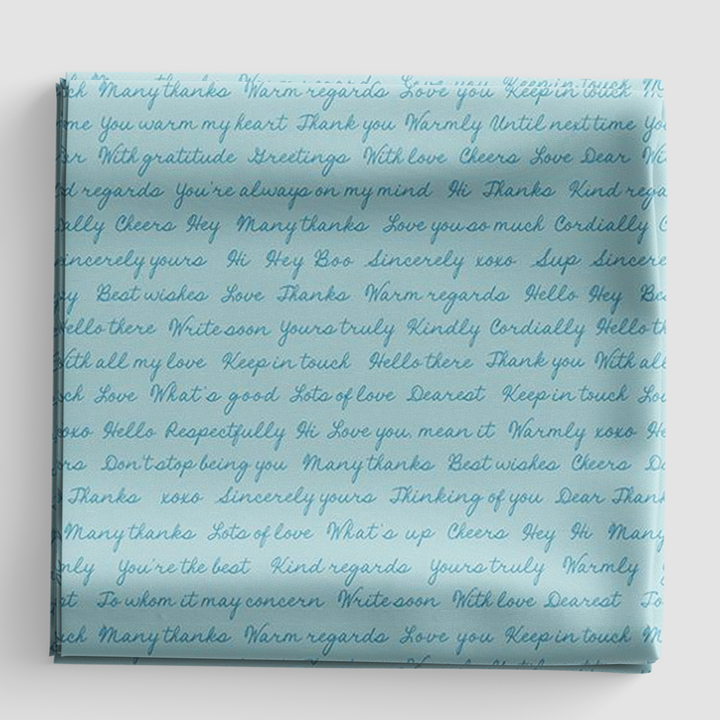 Many thanks Warm regards Love you Keep in touch
You warm my heart Thank you Warmly Until next time
With gratitude Greetings With love Cheers Love Dear
regards You're always on my mind Hi Thanks Kind
Cheers Hey Many thanks Love you so much Cordially
Sincerely yours Hi Hey Boo Sincerely xoxo Sup
Best wishes Love Thanks Warm regards Hello Hey
Hello there Write soon Yours truly Kindly Cordially
With all my love Keep in touch Hello there Thank you With all
Love What's good Lots of love Dearest Keep in touch
xoxo Hello Respectfully Hi Love you, mean it Warmly xoxo
Don't stop being you Many thanks Best wishes Cheers
Thanks xoxo Sincerely yours Thinking of you Dear Thank
Many thanks Lots of love What's up Cheers Hey Hi Many
You're the best Kind regards Yours truly Warmly
To whom it may concern Write soon With love Dearest To
Many thanks Warm regards Love you Keep in touch